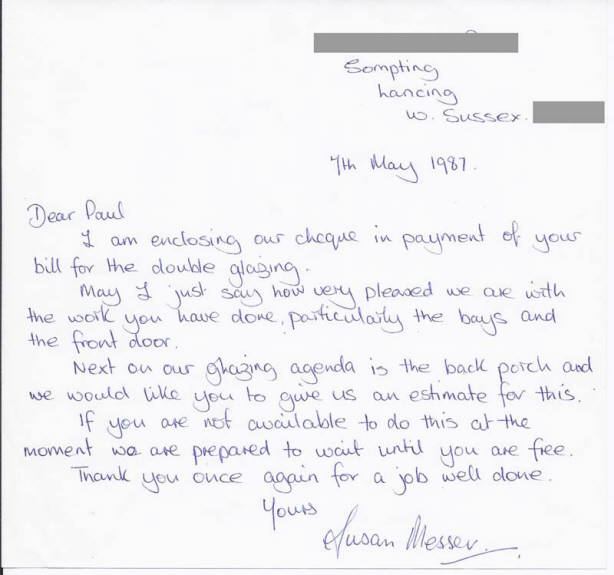 Sompting
Lancing
W. Sussex.
7th May 1987.
Dear Paul
I am enclosing our cheque in payment of your
bill for the double glazing.
May I just say how very pleased we are with
the work you have done, particularily the bays and
the front door.
Next on our glazing agenda is the back porch and
we would like you to give us an estimate for this.
If you are not available to do this at the
moment we are prepared to wait until you are free.
Thank you once again for a job well done.
Yours
Susan Messer.